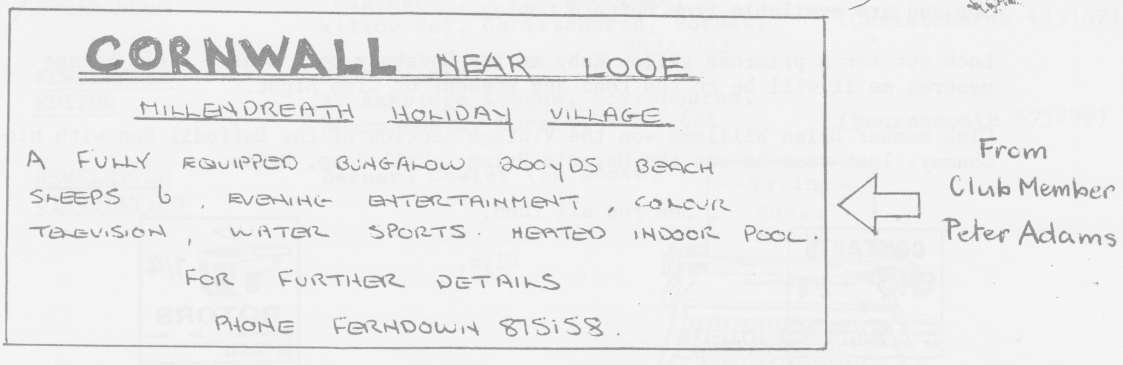 CORNWALL NEAR LOOE
MILLENDREATH HOLIDAY VILLAGE.
A FULLY EQUIPPED BUNGALOW 200YDS BEACH
SLEEPS 6, EVENING ENTERTAINMENT, COLOUR
TELEVISION, WATER SPORTS. HEATED INDOOR POOL.
FOR FURTHER DETAILS
PHONE FERNDOWN 875158.
From
Club Member
Peter Adams